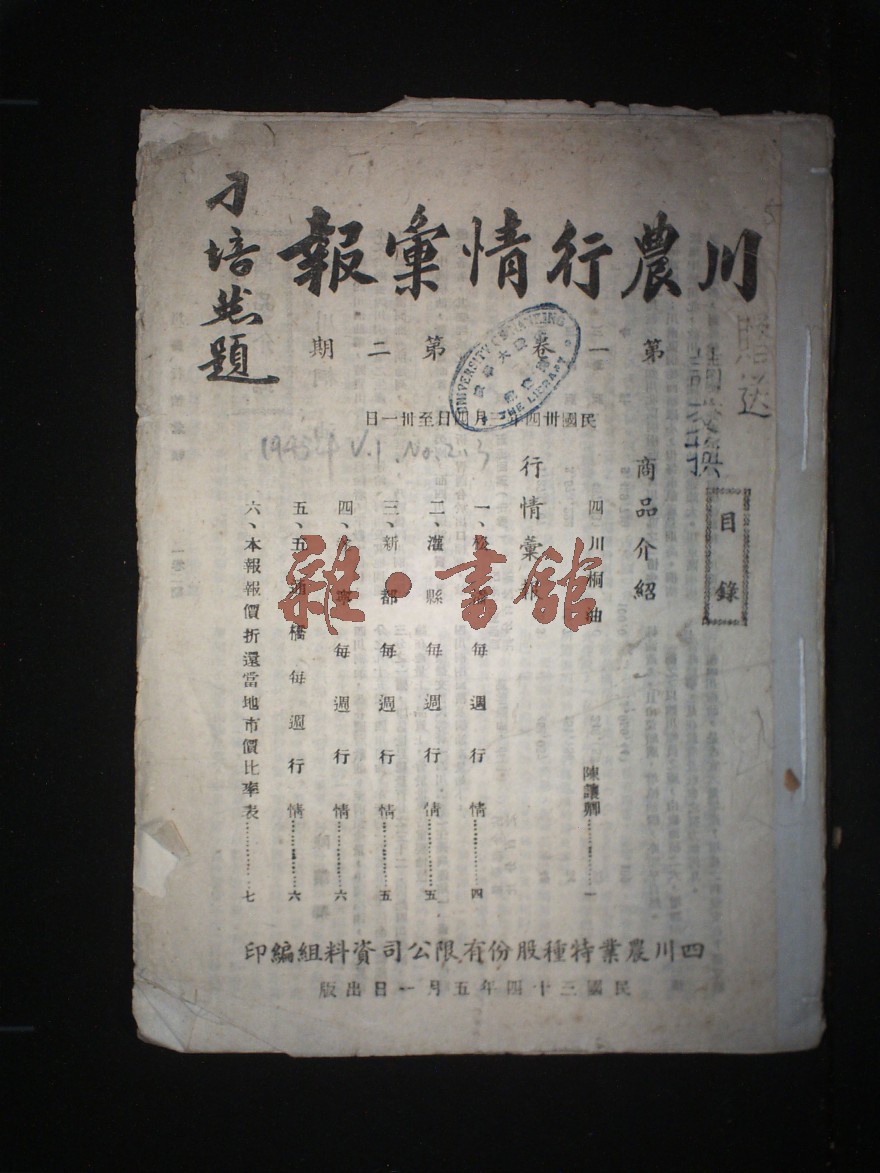 川農行情彙報
刁培然題
第一卷 第二期
民國卅四年 月四日至卅一日
UNIVERSITY OF NANKING
THE LIBRARY
1945年 V.1 No.2.3
贈送
目錄
商品介紹
四川桐油 陳讓卿…………一
行情彙報
一、 每週行情…………四
二、灌縣每週行情…………五
三、新都每週行情…………五
四、 每週行情…………六
五、五通橋每週行情…………六
六、本報報價折還當地市價比率表…………七
四川農業特種股份有限公司資料組編印
民國三十四年五月一日出版
雜·書館